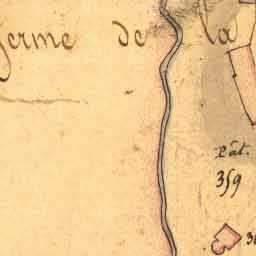 ferme de la
Pât.
359